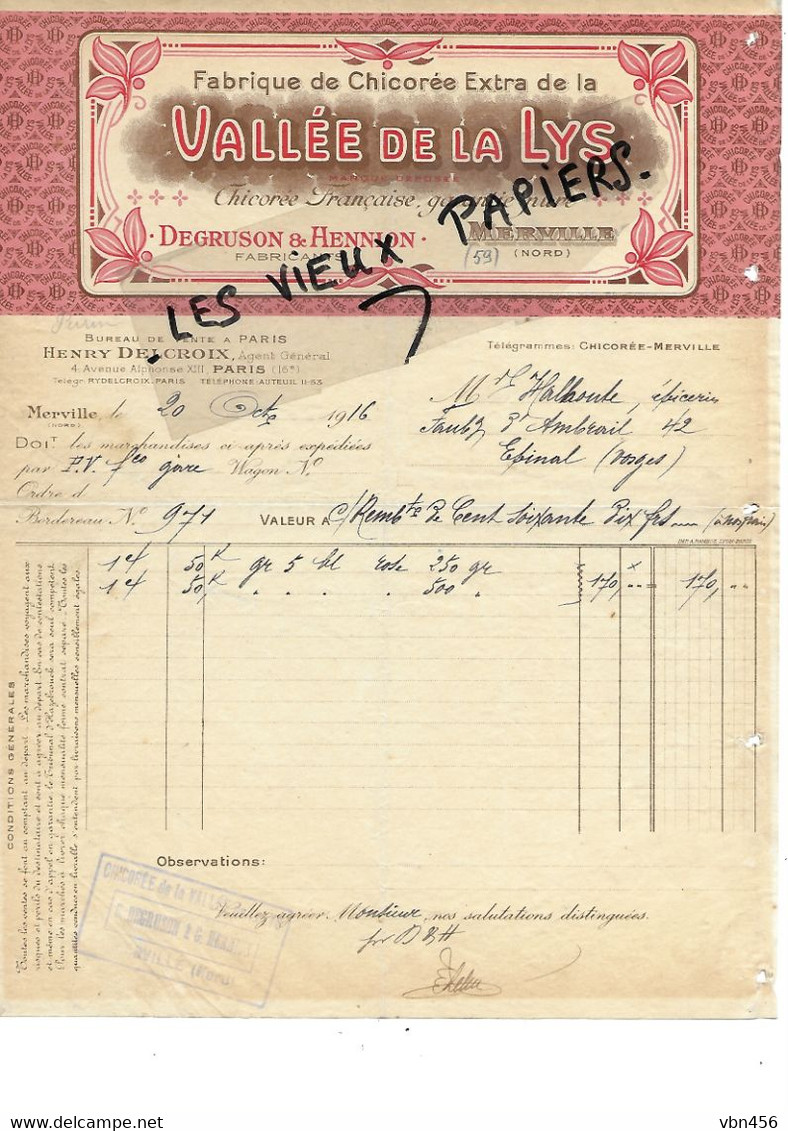 Fabrique de Chicorée Extra de la
VALLÉE DE LA LYS
MARQUE DÉPOSÉE
Chicorée Française, garantie pure
DEGRUSON & HENNION
FABRICANTS
MERVILLE
(59)
(NORD)
LES VIEUX PAPIERS.
BUREAU DE VENTE A PARIS
HENRY DELCROIX, Agent Général
4, Avenue Alphonse XIII, PARIS (16e)
Télégr. RYDELCROIX.PARIS TÉLÉPHONE AUTEUIL 11-53
Télégrammes: CHICORÉE-MERVILLE
Merville, le 20 Octe 1916
(NORD)
épicerie
42
Epinal (Vosges)
DOIT les marchandises ci-après expédiées
par P.V. fco gare Wagon No
Ordre d
Bordereau No 971 VALEUR A c/ Rembt de Cent soixante dix frs
1 ct 50 k gr 5 bl rose 250 gr 170, " = 170, "
1 ct 50 k " " " " 500 "
CONDITIONS GÉNÉRALES
Toutes les ventes se font au comptant au départ. Les marchandises voyagent aux
risques et périls du destinataire et sont à agréer au départ. En cas de contestations
et même en cas d'appel en garantie, le Tribunal d'Hazebrouck sera seul compétent
Pour les marchés à livrer chaque mensualité forme contrat séparé. Toutes les
quantités vendues en livrable s'entendent par livraisons mensuelles sensiblement égales.
Observations:
Veuillez agréer, Monsieur, nos salutations distinguées.
pr D & H
CHICORÉE de la VALLÉE
DEGRUSON & G. HENN
VILLE (Nord)
vbn456